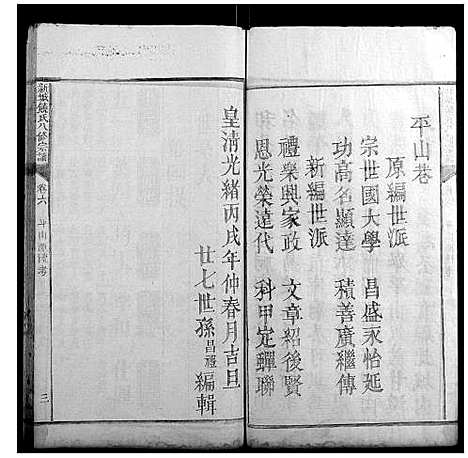 平山巷
原編世派
宗世國大學 昌盛永怡延
功高名顯達 積善廣繼傳
新編世派
禮樂興家政 文章紹後賢
恩光榮遠代 科甲定蟬聯
皇清光緒丙戌年仲春月吉旦
廿七世孫昌禮編輯
新城饒氏八修宗譜
卷六
三